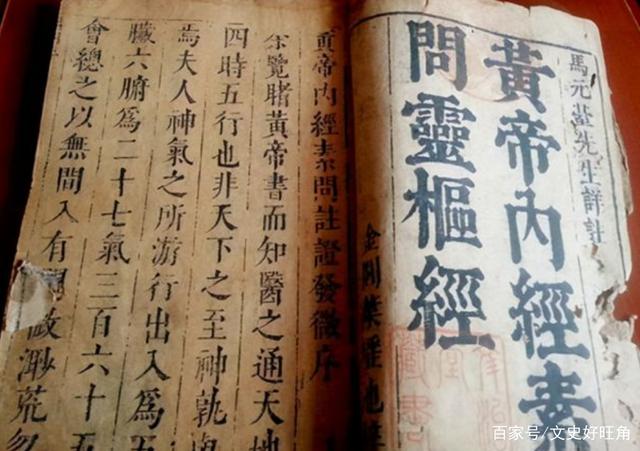 馬元臺先生詳註
黃帝內經素
問靈樞經
黃帝內經素問註證發微序
余覽睹黃帝書而知醫之通天地
四時五行也非天下之至神孰
焉夫人神氣之所游行出入爲五
臟六腑爲二十七氣三百六十五
會總之以無間入有 故渺荒忽
百家号/文史好旺角